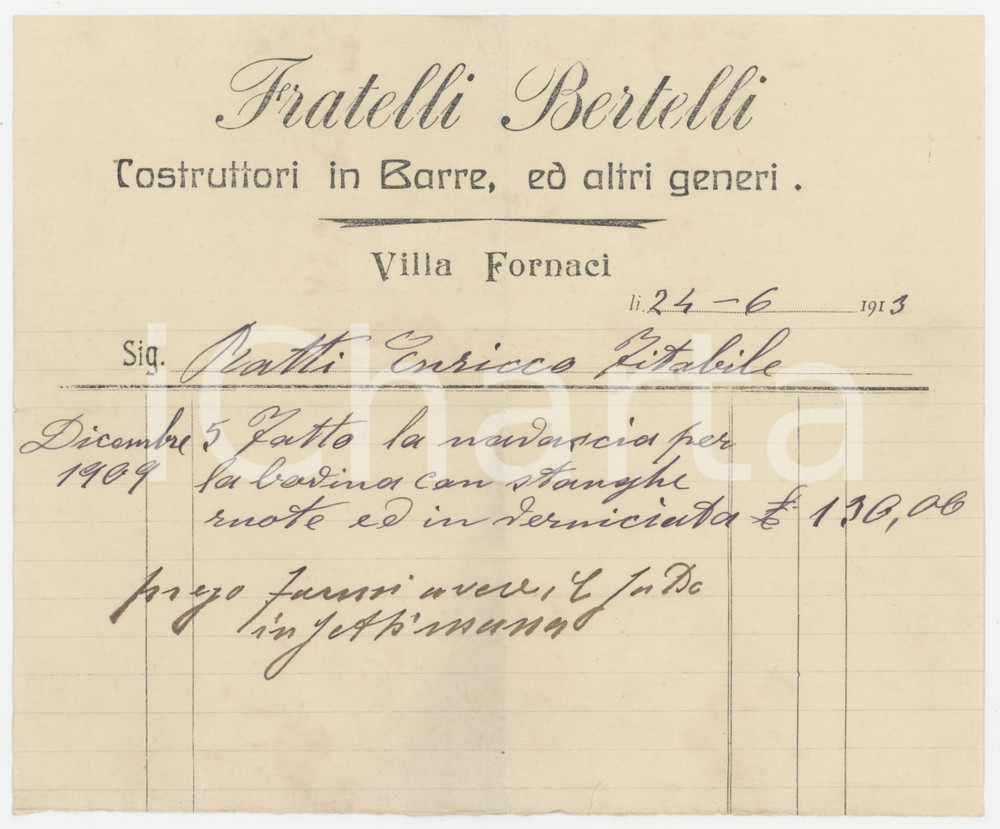 Fratelli Bertelli
Costruttori in Barre, ed altri generi.
Villa Fornaci
li 24 - 6 1913
Sig. Ratti Enricco Fitabile
Dicembre 5 Fatto la per
1909 la con stanghe
ruote ed in verniciata £ 130,00
prego farmi avere il
in settimana
iCharta